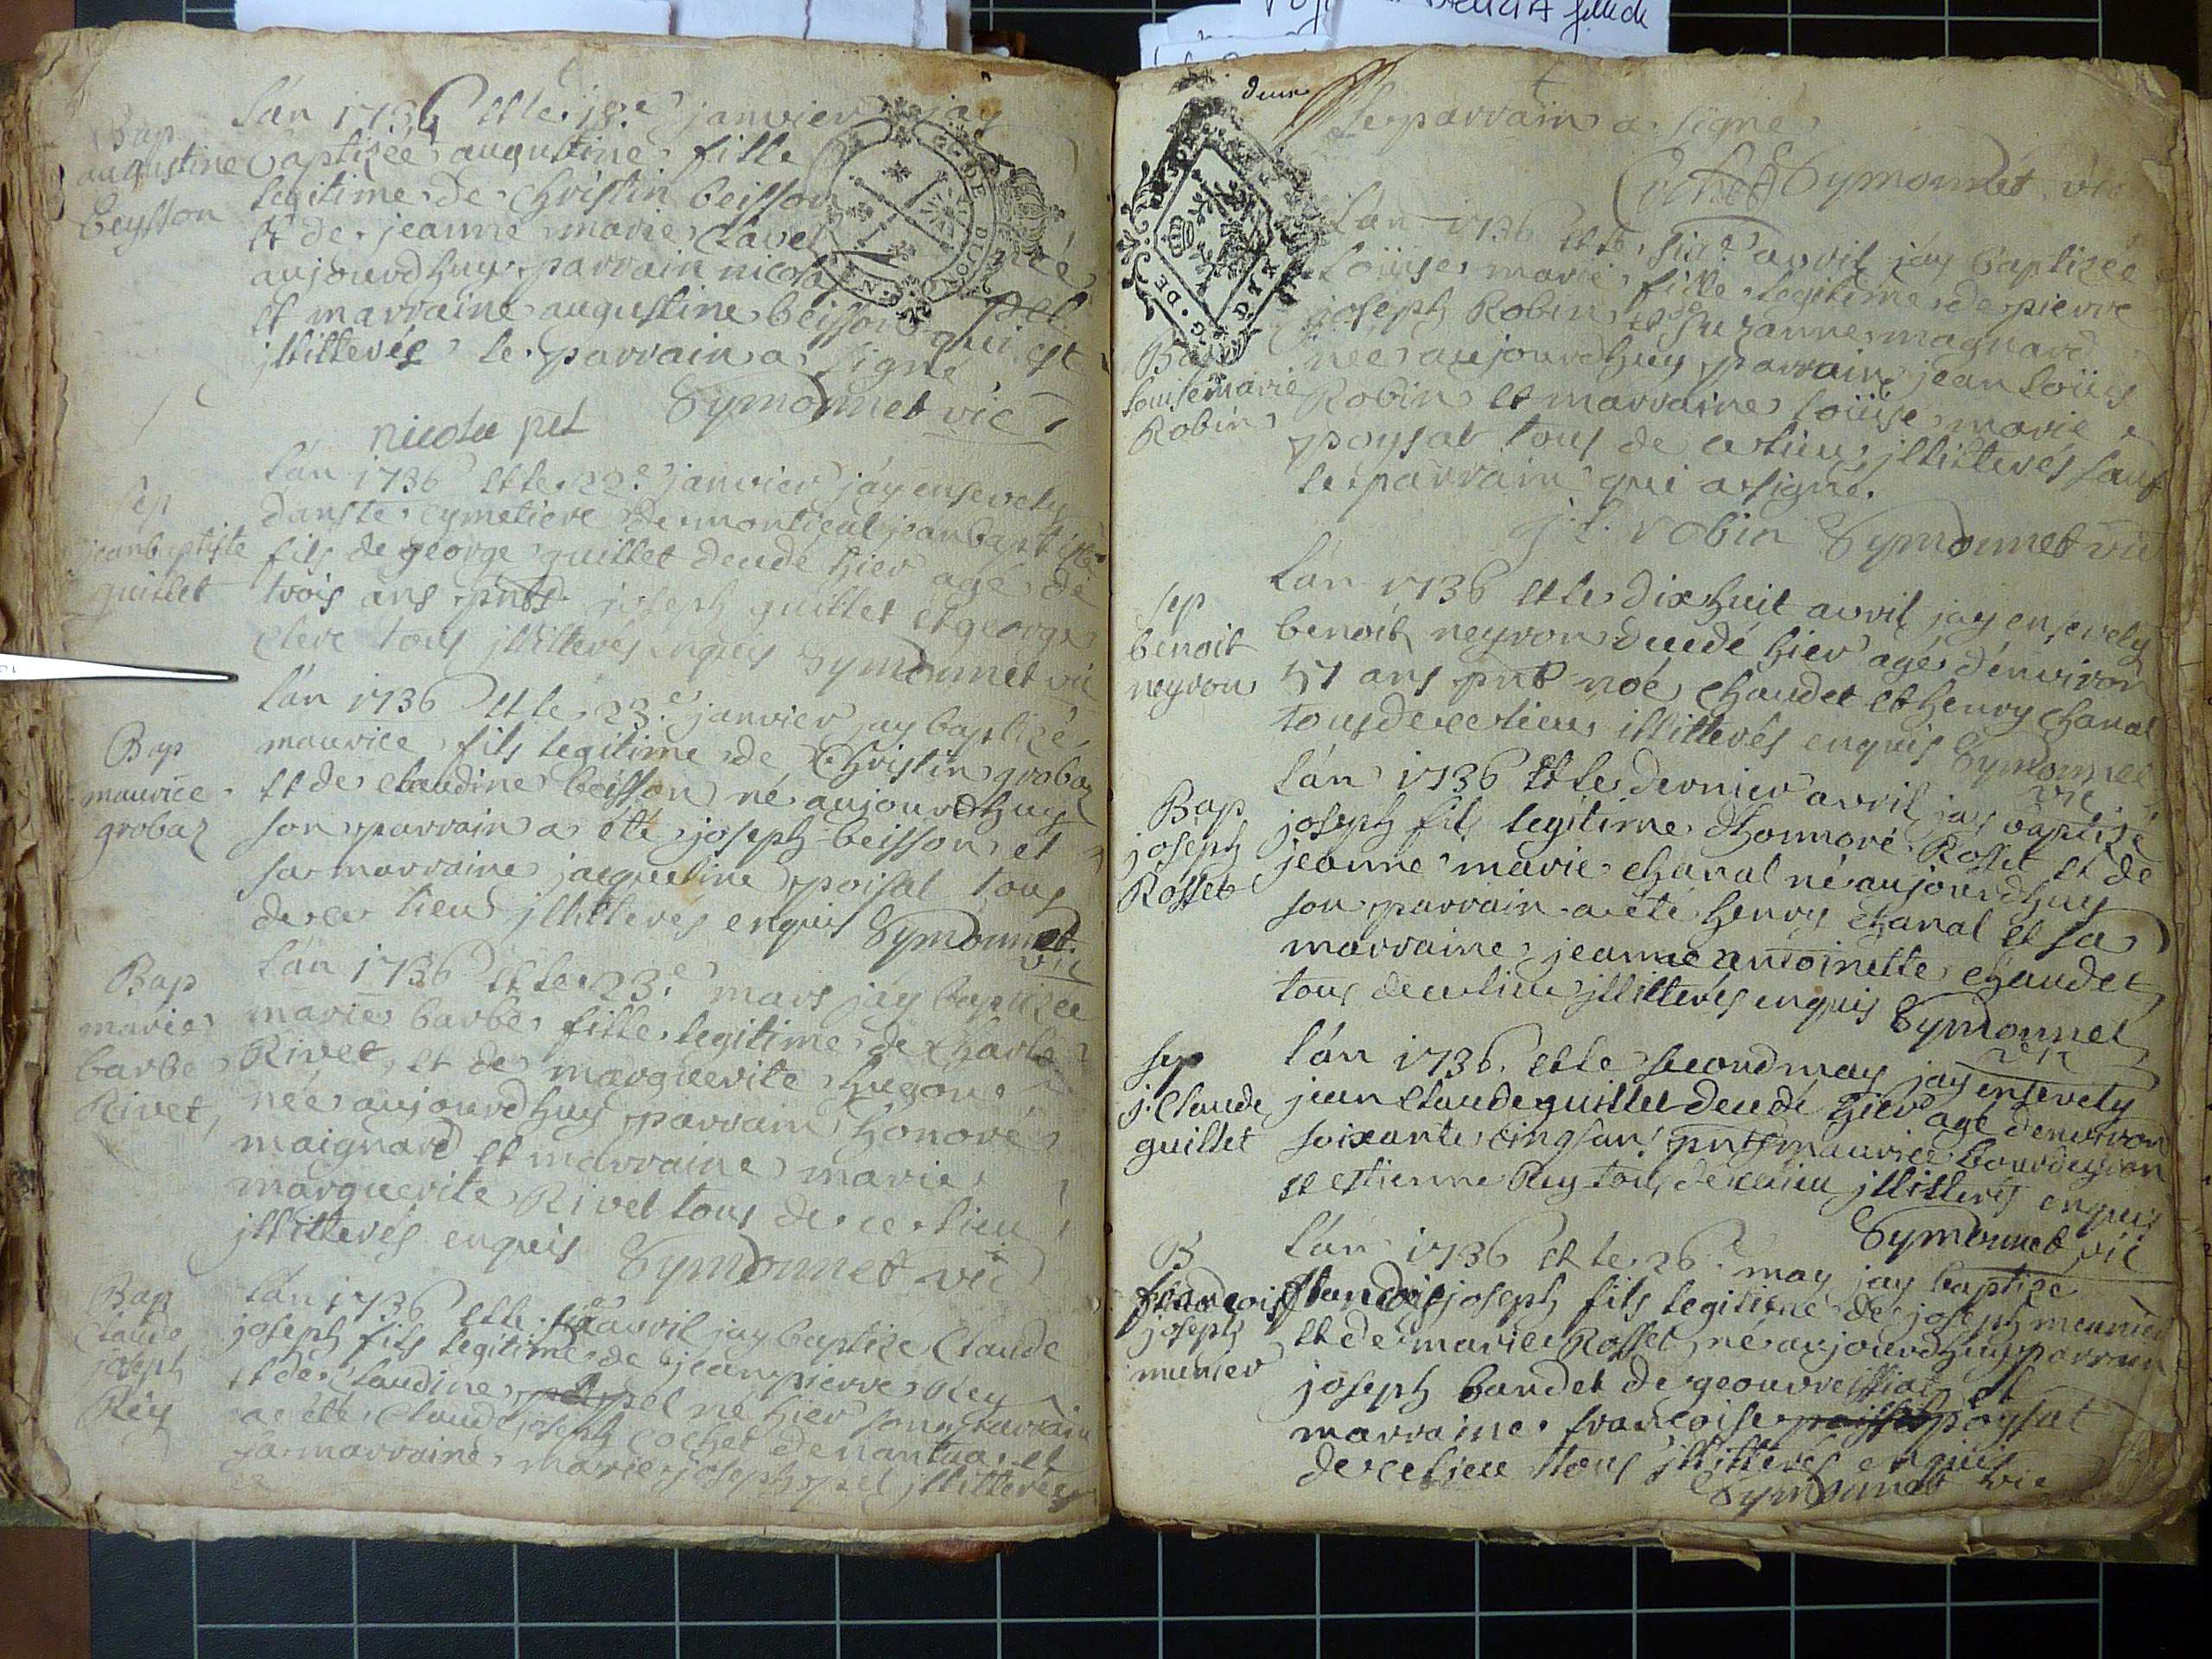 Bap
augustine
beysson
lán 1736 et le 18.e janvier jay
baptisée augustine fille
legitime de Christin beisson
et de jeanne marie Clavel née
aujourdhuy parrain nicolas pel
et marraine augustine beisson qui est
jllitterée le parrain a signé
Symonnet vic
nicolas pel
sep
jeanbaptiste
guillet
lán 1736 et le 22.e janvier jáy ensevely
dans le cymetiere de montical jean baptiste
fils de george guillet decedé hier agé de
trois ans pnts joseph guillet et george
clere tous jllitterés enquis Symonnet vic
Bap
maurice
grobaz
lán 1736 et le 23.e janvier jay baptizé
maurice fils legitime de Christin grobaz
et de claudine beisson né aujourdhuy
son parrain a été joseph beisson et
sa marraine jacqueline poisat tous
de ce lieu jllitterés enquis Symonnet
vic
Bap
marie
barbe
Rivet
lán 1736 et le 23.e mars jáy baptizée
marie barbe fille legitime de Charle
Rivet, et de marguerite hugon
née aujourdhuy parrain honoré
maignard et marraine marie
marguerite Rivet tous de ce lieu
jllitterés enquis Symonnet vic
Bap
Claude
joseph
Rey
lán 1736 et le six avril jay baptize Claude
joseph fils legitime de jean pierre Rey
et de Claudine pel né hier son parrain
a été Claude joseph Cochet de nantua et
sa marraine marie joseph pel jllitterée
deux
Le parrain a signé
Cochet Symonnet vic
Bap
Louise marie
Robin
Lán 1736 et le six.e avril jay baptizée
Loüise marie fille legitime de pierre
joseph Robin et de Suzanne magnard
née aujourdhuy parrain jean Loüis
Robin et marraine Loüise marie
poysat tous de ce lieu jllitterés sauf
le parrain qui a signé.
j. l. robin Symonnet vic
sep
benoit
neyron
lán 1736 et le dixhuit avril jay ensevely
benoit neyron decedé hier agé dénviron
51 ans pnt noé chaudet et henry chanal
tous de ce lieu illitterés enquis Symonnet
vic
Bap
joseph
Rosset
lán 1736 et le dernier avril jay baptisé
joseph fils legitime dhonnoré Rosset et de
jeanne marie chanal né aujourdhuy
son parrain a été henry chanal et sa
marraine jeanne antoinette chaudet
tous de ce lieu jllitterés enquis Symonnet
vic
sep
j. Claude
guillet
lán 1736. et le second may jay ensevely
jean Claude guillet decedé hier agé denviron
soixante cinq ans pnts maurice bourdeyron
et estienne Rey tous de ce lieu jllitterés enquis
Symonnet vic
B
françois
joseph
munier
lán 1736 et le 26.e may jay baptize
françois joseph fils legitime de joseph meunier
et de marie Rosset né aujourdhuy parrain
joseph baudet de geovreissiat et
marraine francoise poysat
de ce lieu tous jllitterés enquis
Symonnet vic